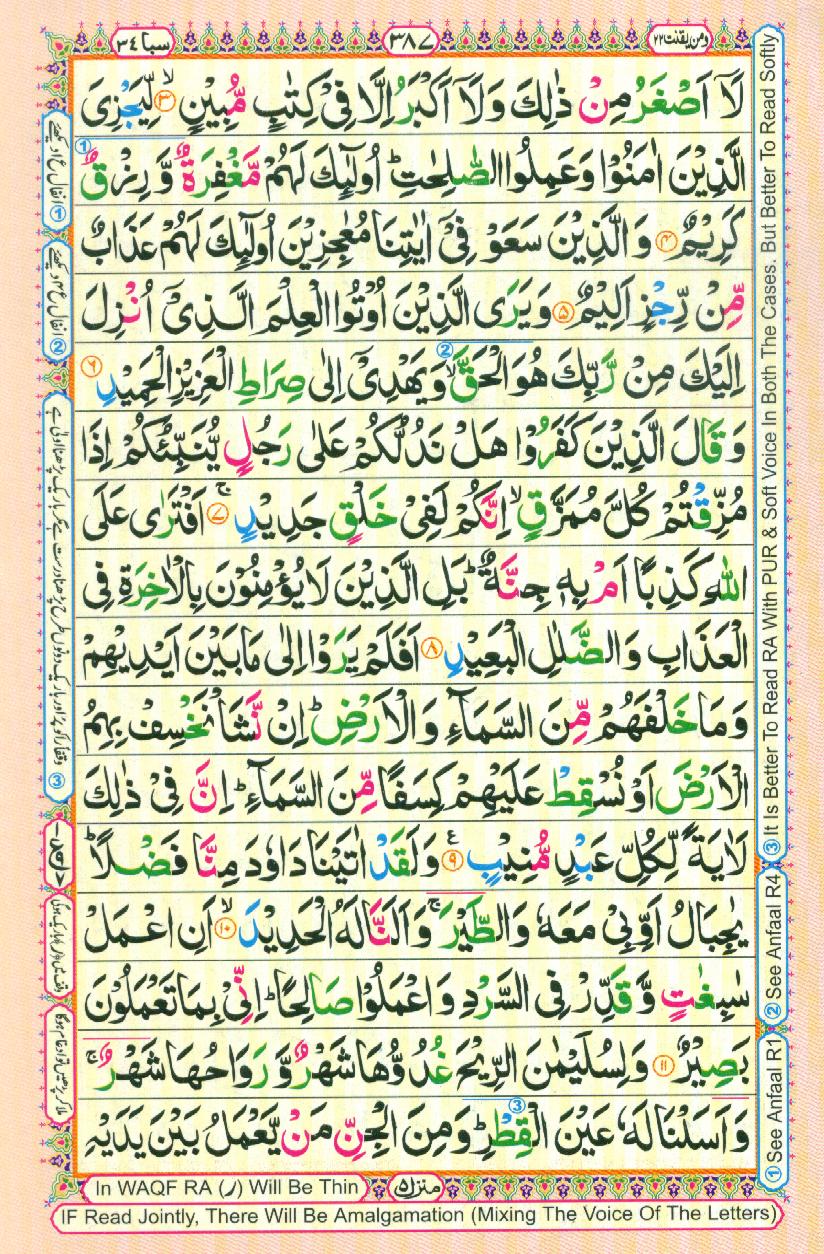 سبا ٣٤
٣٨٧
ومن یقنت ٢٢
لَاۤ اَصْغَرُ مِنْ ذٰلِكَ وَلَاۤ اَكْبَرُ اِلَّا فِیْ كِتٰبٍ مُّبِیْنٍ ۙ﴿۳﴾ لِّیَجْزِیَ
الَّذِیْنَ اٰمَنُوْا وَعَمِلُوا الصّٰلِحٰتِ ؕ اُولٰٓئِكَ لَهُمْ مَّغْفِرَةٌ وَّ رِزْقٌ
كَرِیْمٌ ﴿۴﴾ وَ الَّذِیْنَ سَعَوْ فِیْۤ اٰیٰتِنَا مُعٰجِزِیْنَ اُولٰٓئِكَ لَهُمْ عَذَابٌ
مِّنْ رِّجْزٍ اَلِیْمٌ ﴿۵﴾ وَیَرَی الَّذِیْنَ اُوْتُوا الْعِلْمَ الَّذِیْۤ اُنْزِلَ
اِلَیْكَ مِنْ رَّبِّكَ هُوَ الْحَقَّ ۙ وَیَهْدِیْۤ اِلٰی صِرَاطِ الْعَزِیْزِ الْحَمِیْدِ ﴿۶﴾
وَ قَالَ الَّذِیْنَ كَفَرُوْا هَلْ نَدُلُّكُمْ عَلٰی رَجُلٍ یُّنَبِّئُكُمْ اِذَا
مُزِّقْتُمْ كُلَّ مُمَزَّقٍ ۙ اِنَّكُمْ لَفِیْ خَلْقٍ جَدِیْدٍ ۚ﴿۷﴾ اَفْتَرٰی عَلَی
اللّٰهِ كَذِبًا اَمْ بِهٖ جِنَّةٌ ؕ بَلِ الَّذِیْنَ لَا یُؤْمِنُوْنَ بِالْاٰخِرَةِ فِی
الْعَذَابِ وَ الضَّلٰلِ الْبَعِیْدِ ﴿۸﴾ اَفَلَمْ یَرَوْا اِلٰی مَا بَیْنَ اَیْدِیْهِمْ
وَ مَا خَلْفَهُمْ مِّنَ السَّمَآءِ وَ الْاَرْضِ ؕ اِنْ نَّشَاْ نَخْسِفْ بِهِمُ
الْاَرْضَ اَوْ نُسْقِطْ عَلَیْهِمْ كِسَفًا مِّنَ السَّمَآءِ ؕ اِنَّ فِیْ ذٰلِكَ
لَاٰیَةً لِّكُلِّ عَبْدٍ مُّنِیْبٍ ﴿۹﴾ ع وَلَقَدْ اٰتَیْنَا دَاوٗدَ مِنَّا فَضْلًا ؕ
یٰجِبَالُ اَوِّبِیْ مَعَهٗ وَ الطَّیْرَ ۚ وَ اَلَنَّا لَهُ الْحَدِیْدَ ۙ﴿۱۰﴾ اَنِ اعْمَلْ
سٰبِغٰتٍ وَّ قَدِّرْ فِی السَّرْدِ وَ اعْمَلُوْا صَالِحًا ؕ اِنِّیْ بِمَا تَعْمَلُوْنَ
بَصِیْرٌ ﴿۱۱﴾ وَ لِسُلَیْمٰنَ الرِّیْحَ غُدُوُّهَا شَهْرٌ وَّ رَوَاحُهَا شَهْرٌ ۚ
وَ اَسَلْنَا لَهٗ عَیْنَ الْقِطْرِ ؕ وَ مِنَ الْجِنِّ مَنْ یَّعْمَلُ بَیْنَ یَدَیْهِ
① See Anfaal R1
② See Anfaal R4
③ It Is Better To Read RA With PUR & Soft Voice In Both The Cases. But Better To Read Softly
In WAQF RA (ر) Will Be Thin
منزل ۵
IF Read Jointly, There Will Be Amalgamation (Mixing The Voice Of The Letters)